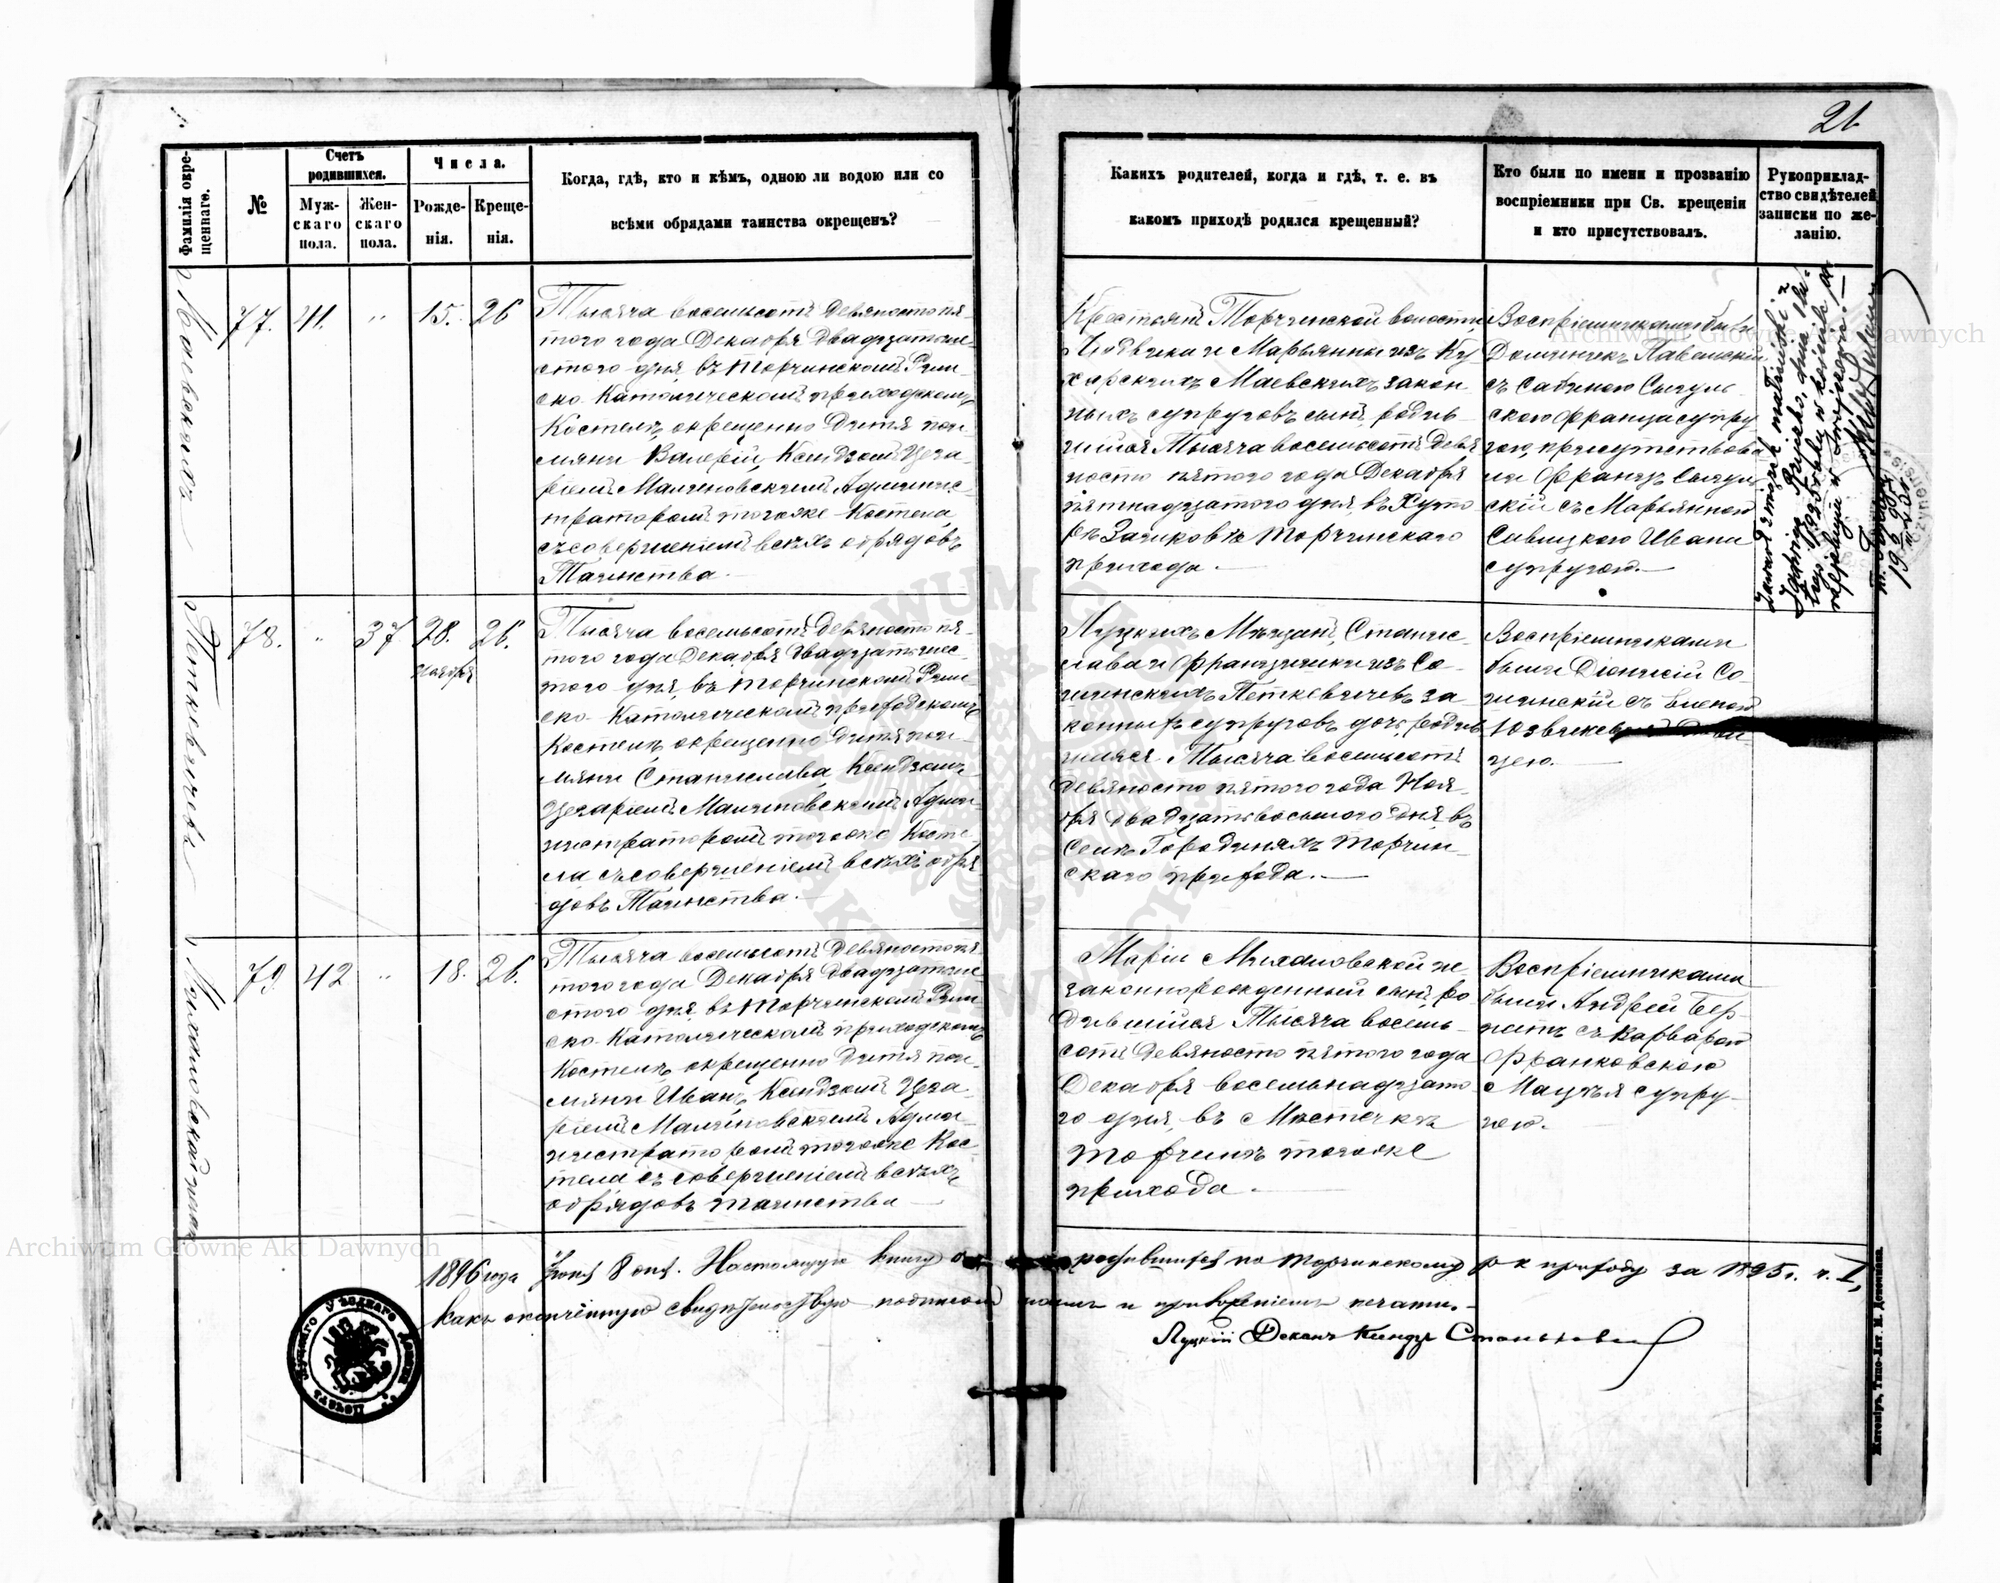 21
Фамилія окре-
щеннаго.
№
Счетъ
родившихся.
Муж-
скаго
пола.
Жен-
скаго
пола.
Числа.
Рожде-
нія.
Креще-
нія.
Когда, гдѣ, кто и кѣмъ, одною ли водою или со
всѣми обрядами таинства окрещенъ?
Какихъ родителей, когда и гдѣ, т. е. въ
какомъ приходѣ родился крещенный?
Кто были по имени и прозванію
воспріемники при Св. крещеніи
и кто присутствовалъ.
Рукоприклад-
ство свидѣтелей
записки по же-
ланію.
Маевскихъ
77.
41.
"
15.
26
Тысяча восемьсотъ девяносто пя-
того года Декабря двадцатоше-
стого дня, въ Торчинскомъ Рим-
ско-Католическомъ приходскомъ
Костелѣ, окрещено дитя по и-
мяни Валерій, Ксендзомъ Цеза-
ріемъ Малиновскимъ Админис-
траторомъ тогоже Костела,
съ совершеніемъ всѣхъ обрядовъ
Таинства.
Крестьянъ Торчинской волости
Людвика и Марьянны изъ Ку-
харскихъ Маевскихъ закон-
ныхъ супруговъ сынъ, родив-
шійся Тысяча восемьсотъ девя-
носто пятого года Декабря
пятнадцатого дня, въ Хуто-
рѣ Торчинского
прихода.
Воспріемниками были
Доминикъ
съ Сабиною
Франца супру-
гою, присутствова-
ли Францъ
скій съ Марьянною
Савицкого Ивана
супругою.
Zawarł związek małżeński z
Jadwigą
Петкевичовъ
78.
"
37
28.
Ноября
26.
Тысяча восемьсотъ девяносто пя-
того года Декабря двадцатошес-
того дня, въ Торчинскомъ Рим-
ско-Католическомъ приходскомъ
Костелѣ, окрещено дитя по и-
мяни Станислава, Ксендзомъ
Цезаріемъ Малиновскимъ Адми-
нистраторомъ тогоже Косте-
ла съ совершеніемъ всѣхъ обря-
довъ Таинства.
Луцкихъ Мѣщанъ, Станис-
лава и Францишки изъ Со-
шинскихъ Петкевичевъ за-
конныхъ супруговъ дочь, родив-
шаяся Тысяча восемьсотъ
девяносто пятого года Нояб-
ря двадцатовосьмого дня, въ
Селѣ Городиняхъ Торчин-
скаго прихода.
Воспріемниками
были Діонисій Со-
шинскій съ Еленою
цею.
Михаловской сынъ
79
42
"
18.
26.
Тысяча восемьсотъ девяносто пя-
того года Декабря двадцатоше-
стого дня, въ Торчинскомъ Рим-
ско-Католическомъ приходскомъ
Костелѣ, окрещено дитя по и-
мяни Иванъ, Ксендзомъ Цеза-
ріемъ Малиновскимъ Адми-
нистраторомъ тогоже Кос-
тела съ совершеніемъ всѣхъ
обрядовъ таинства
Маріи Михаловской не-
законнорожденный сынъ, ро-
дившійся Тысяча восемь-
сотъ девяносто пятого года
Декабря восемьнадцато-
го дня, въ Мѣстечкѣ
Торчинѣ тогоже
прихода.
Воспріемниками
были Андрей Бер-
натъ съ Варварою
Франковскою
Мацѣя супру-
гою.
1896 года Іюня 8 дня. Настоящую книгу о родившихся по Торчинскому р-к приходу за 1895 г. ч. I,
какъ оконченную свидѣтельствую подписомъ моимъ и приложеніемъ печати.
Луцкій Деканъ Ксендзъ
Житоміръ, Типо-Лит. М. Дененмана.
Archiwum Główne Akt Dawnych
Archiwum Główne Akt Dawnych